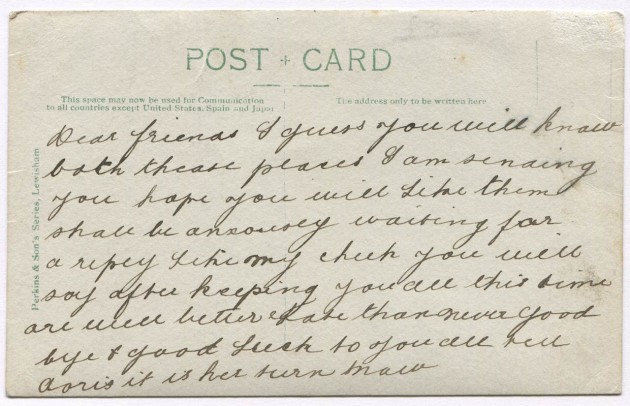 POST + CARD
This space may now be used for Communication
to all countries except United States, Spain and Japan
The address only to be written here
Perkins & Son's Series, Lewisham
Dear friends I guess you will know
both thease places I am sending
you hope you will like them
shall be anxousley waiting for
a repley like my cheek you will
say after keeping you all this time
are well better Late than never Good
bye & good Luck to you all tell
doris it is her turn Maw